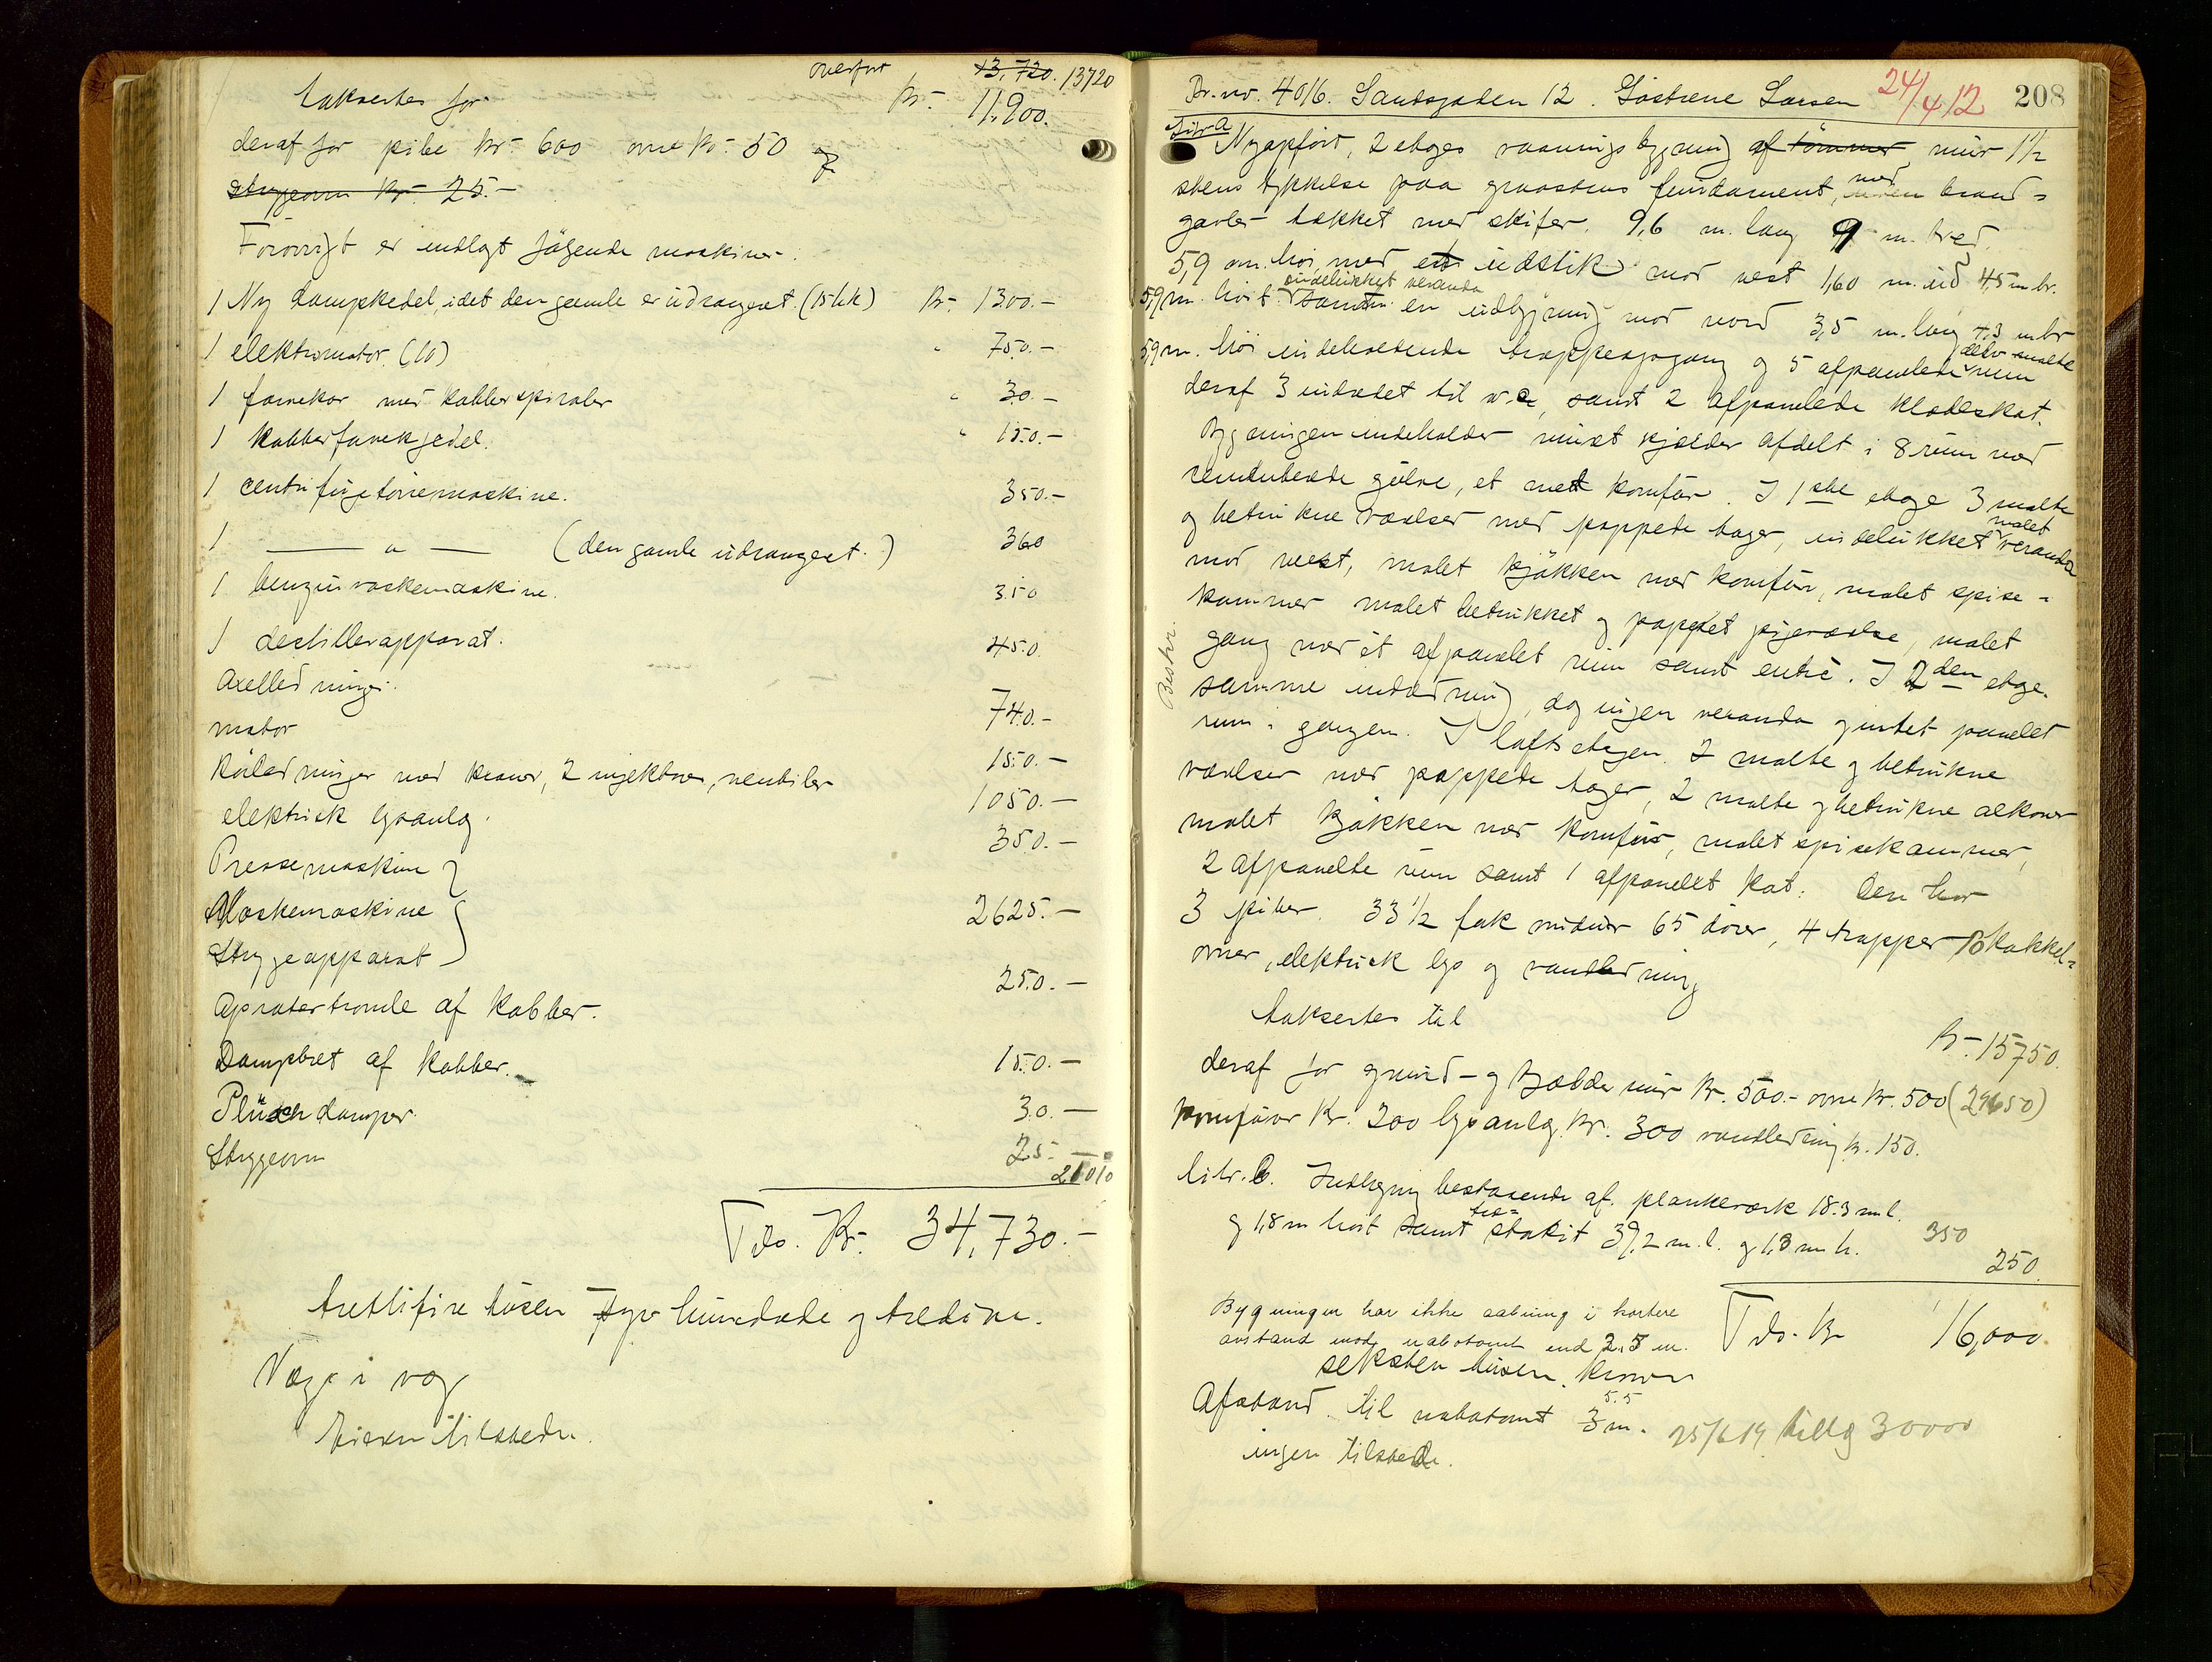 overført 13,720. 13720
takseres for Kr- 11,900.
deraf for pibe Kr- 600 ovne Kr- 50 og
strygeovn Kr- 25.-
Forøvrigt er indlagt følgende maskiner:
1 Ny dampkedel, idet den gamle er udrangeret. (15 hk) Kr- 1300.-
1 elektromotor. (10) " 750.-
1 farvekar med kobberspiraler " 30.-
1 kobberfarvekjedel. " 150.-
1 centrifugetørremaskine. 350.-
1 — " — (den gamle udrangeret.) 360
1 benzinvaskemaskine. 350
1 destillerapparat. 450.
Axelledninger. 740.-
motor 150.-
Rørledninger med kraner, 2 injektorer, ventiler 1050.-
elektrisk lysanlæg. 350.-
Pressemaskine }
Vaskemaskine } 2625.-
Strygeapparat }
Apratertromle af kobber. 250.-
Dampbret af kobber. 150.-
Plüschdamper. 30.-
Strygeovn 25.-
21010
Tils. Kr. 34,730.-
trettifire tusen syv hundrede og tredive.
Væg i væg
Eieren tilstede.
208
Br. no. 4016. Sandsgaden 12. Søstrene Larsen 24/4 12
Litr a Nyopført, 2 etages vaaningsbygning af tømmer, mur 1½
stens tykkelse paa graastens fundament, uden med brand-
gavler tækket med skifer. 9,6 m. lang 9 m. bred.
5,9 m. høi med et udstik mod vest 1,60 m. ud 4,5 m br.
5,9 m. høit indelukket veranda samt en udbygning mod nord 3,5 m. lang 4,3 m br
5,9 m. høi indeholdende trappeopgang og 5 afpanelede delv malte rum
deraf 3 indredet til w.c, samt 2 afpanelede klædeskot.
Bygningen indeholder muret kjælder afdelt i 8 rum med
cementerede gulve, et med komfur. I 1ste etage 3 malte
og betrukne værelser med pappede tager, indelukket malet veranda
mod vest, malet kjøkken med komfur, malet spise-
kammer malet betrukket og pappet pigeværelse, malet
gang med et afpanelet rum samt entré. I 2den etage.
samme indredning, dog ingen veranda og intet panelet
rum i gangen. I loftsetagen 2 malte og betrukne
værelser med pappede tager, 2 malte og betrukne alkover
malet kjøkken med komfur, malet spisekammer,
2 afpanelte rum samt 1 afpanelet kot. Den har
3 piber. 33½ fak vinduer 65 dører, 4 trapper 10 kakkel-
ovner, elektrisk lys og vandledning
takseres til Kr- 15750.
deraf for grund- og kjældermur Kr. 500.- ovne Kr. 500 (29650)
komfurer Kr. 200 lysanlæg. Kr. 300 vandledning Kr. 150.
Litr. b. Indhegning bestaaende af plankeværk 18.3 m l.
og 1,8 m høit samt træ- stakit 39,2 m. l. og 1,3 m h. 350
250.
Bygningen har ikke aabning i kortere
avstand mod nabotomt end 2.5 m. Tils. Kr 16,000.
seksten tusen kroner
Afstand til nabotomt 3 m. 5.5
25/6 19 tillæg 30000
ingen tilstede.